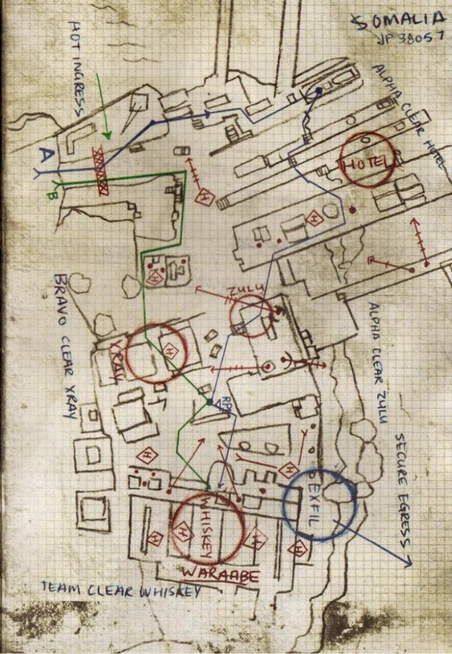 SOMALIA
JP 38057
HOT INGRESS
ALPHA CLEAR HOTEL
HOTEL
A
B
H
H
H
ZULU
BRAVO CLEAR XRAY
XRAY
H
ALPHA CLEAR ZULU
RP1
SECURE EGRESS
H
H
EXFIL
WHISKEY
H
H
H
H
WARAABE
TEAM CLEAR WHISKEY